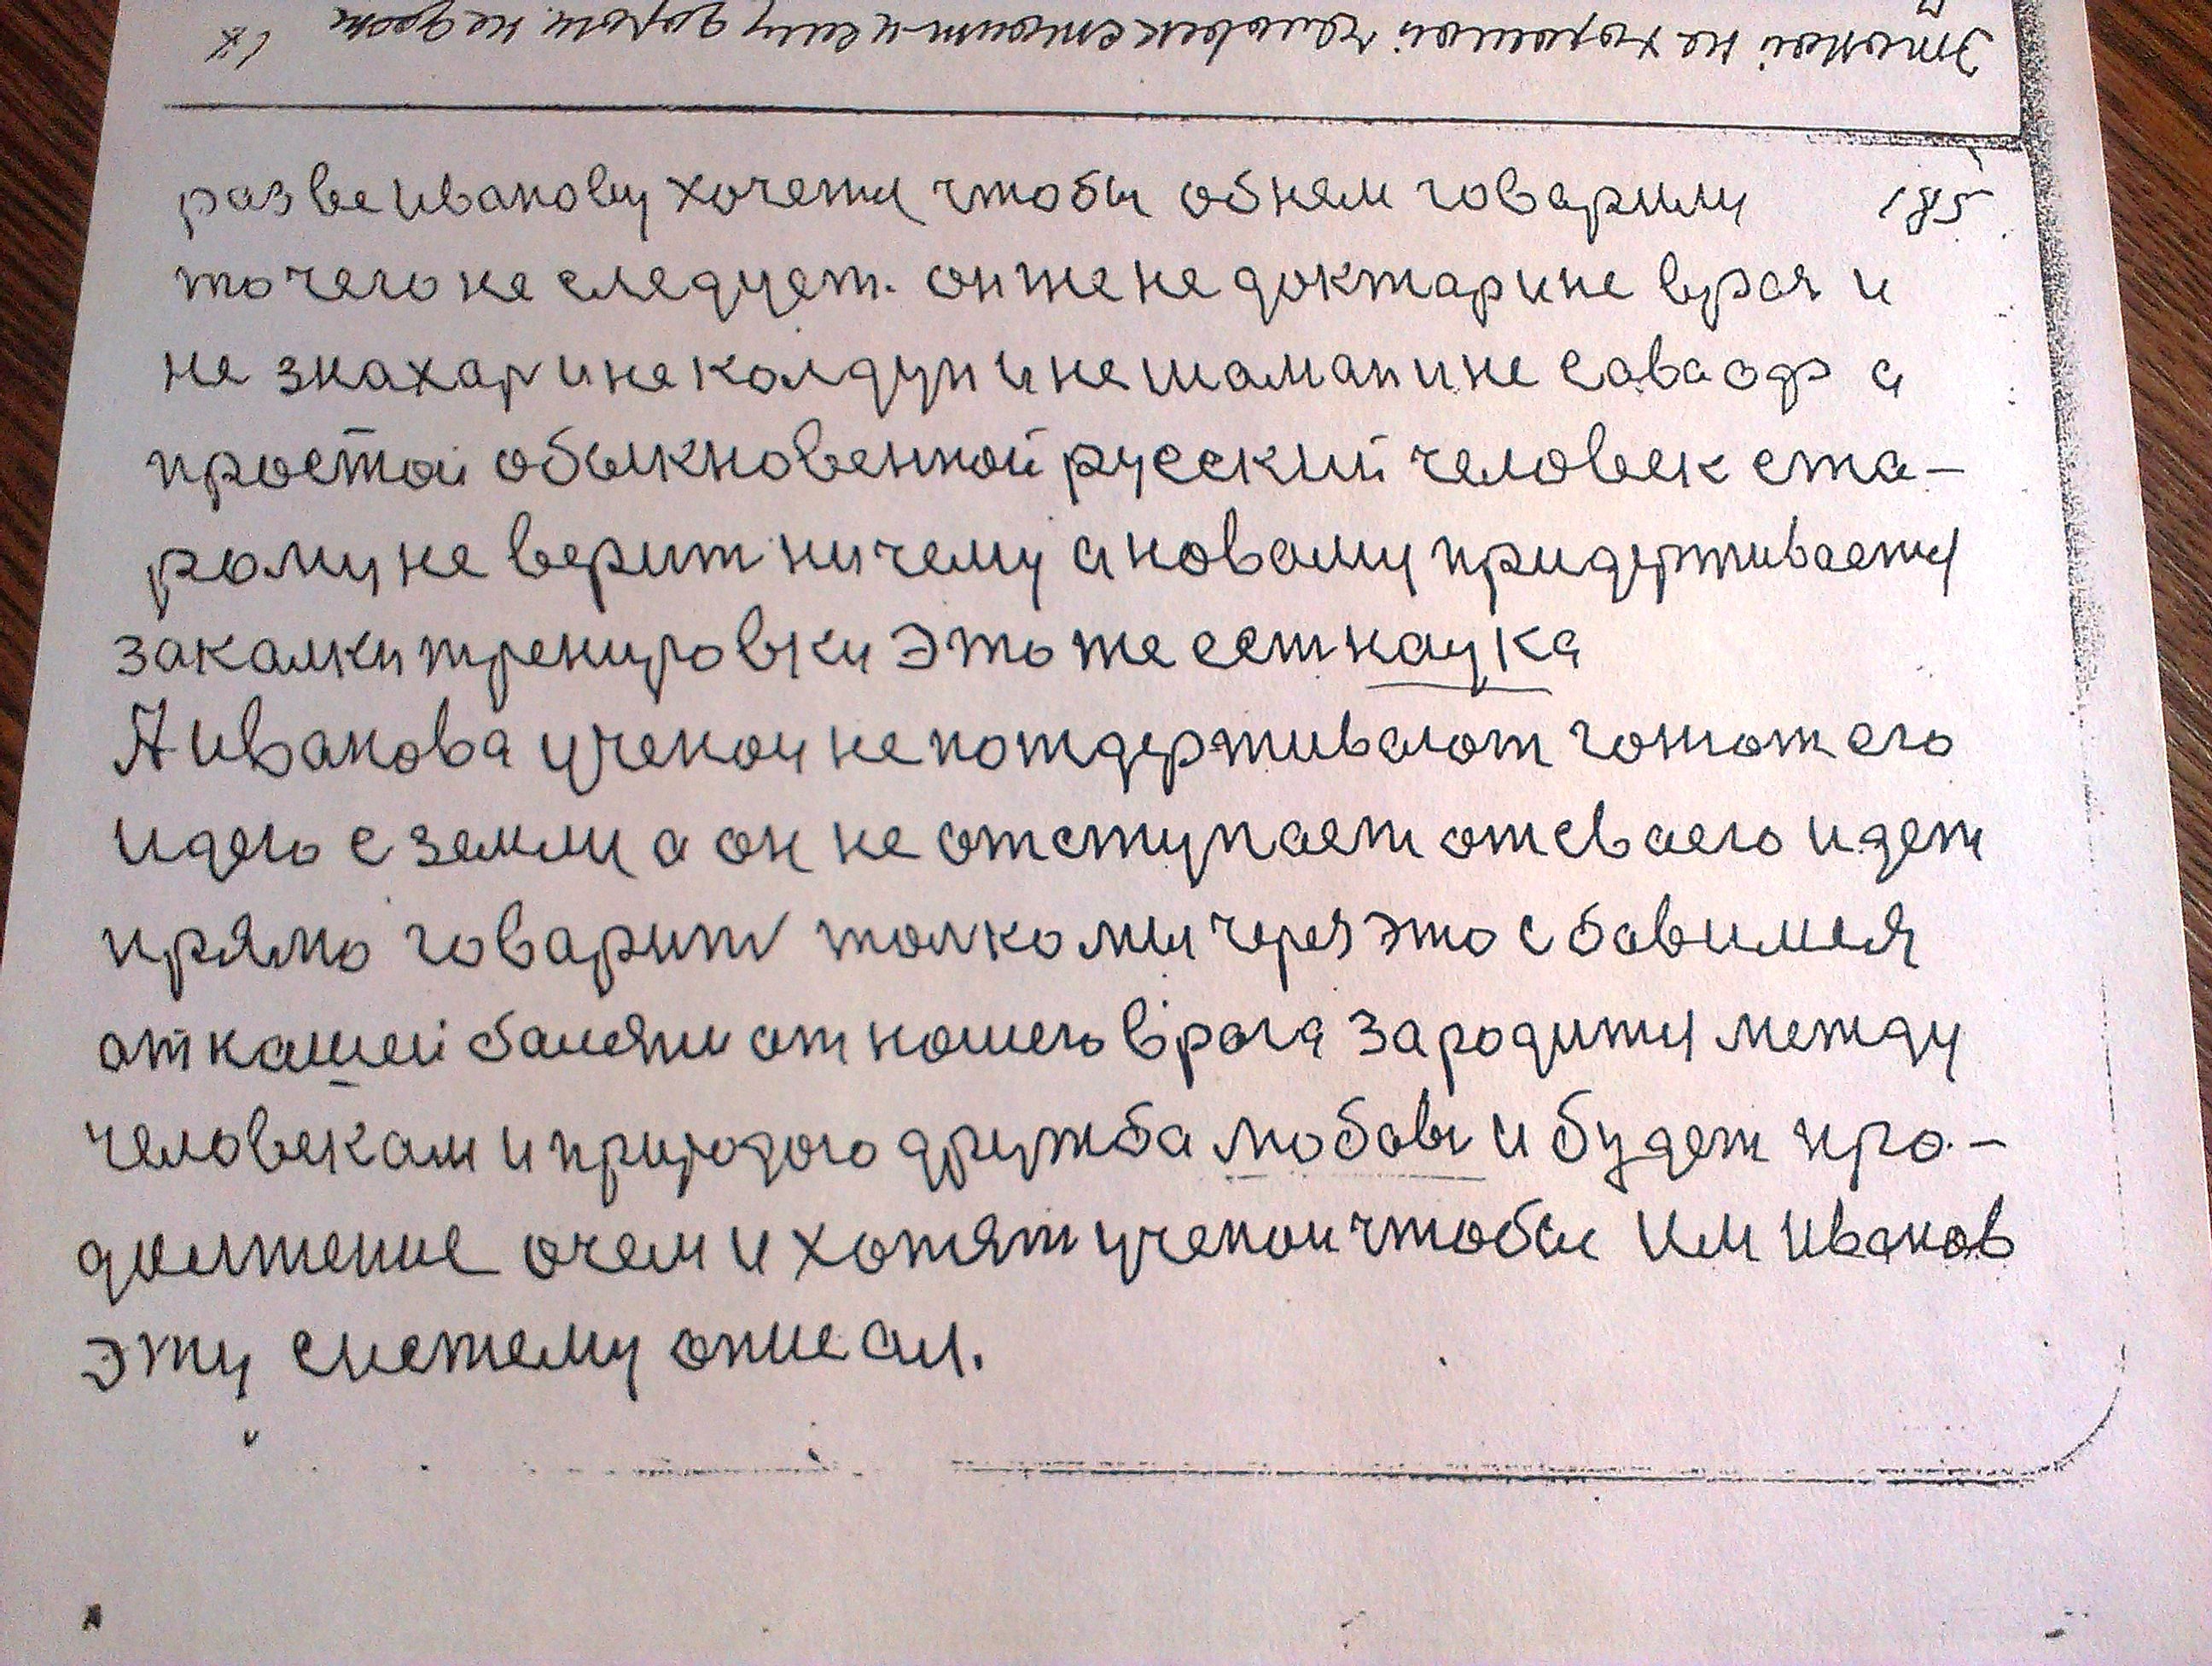 Этотой не хороший человек стоит и ему дороги не дает
185
разве иванову хочети чтобы обнем говарили
то чего не следует. он же не доктар и не врач и
не знахар и не колдун и не шаман и не саваоф а
простой обыкновенной русский человек ста-
рому не верит ничему а новаму придерживаети
закалки тренировки это же ест наука
А иванова ученои не потдерживают гонют его
идею с земли а он не отступает от сваего идет
прямо говарит толко мы через это сбавимся
от нашей балезни от нашего врага зародити между
человекам и природою дружба любовь и будет про-
должение очем и хотят ученои чтобы им иванов
эту систему описал.